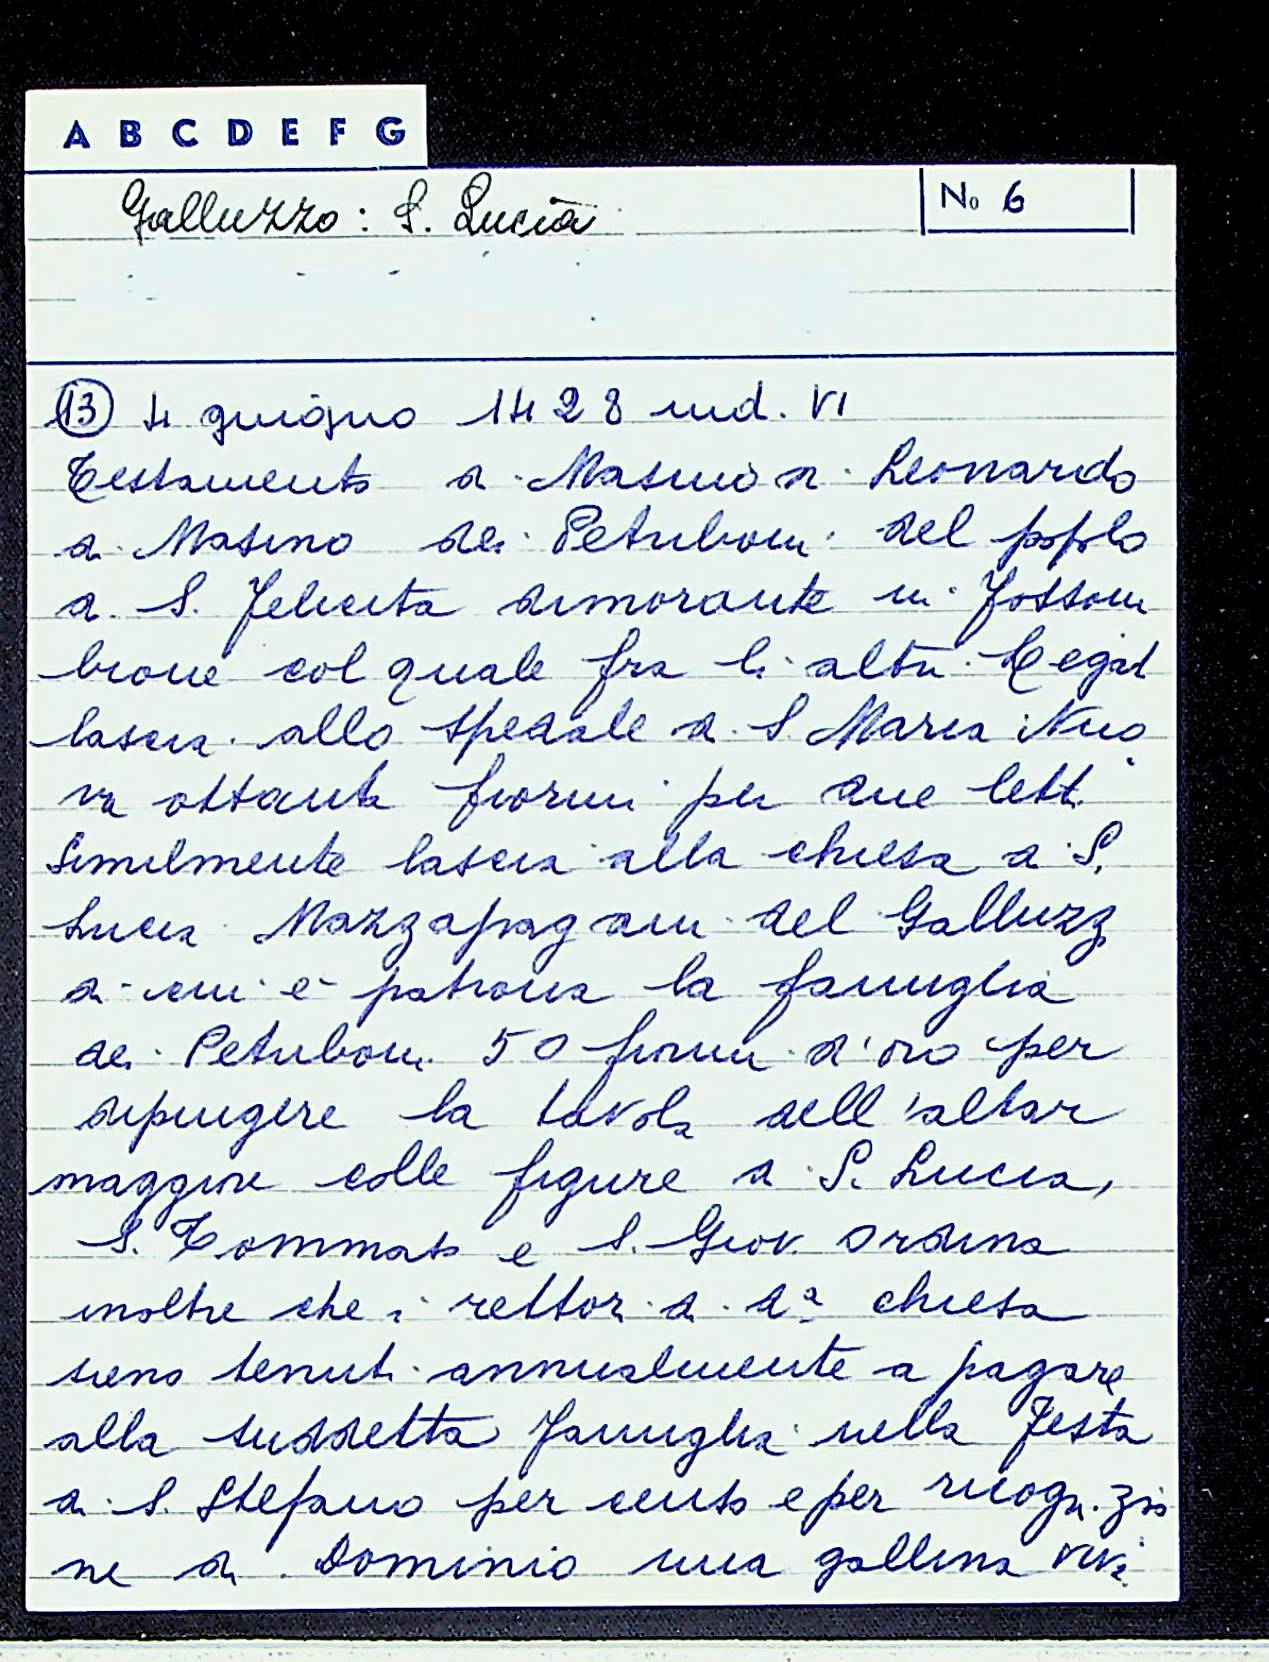 A B C D E F G
Galluzzo: S. Lucia
No 6
(13) 4 giugno 1428 ind. VI
Testamento di Masino di Leonardo
di Masino dei Petriboni del popolo
di S. Felicita dimorante in Fossom
brone col quale fra li altri Legati
lascia allo spedale di S Maria Nuo
va ottanta fiorini per due letti
Similmente lascia alla chiesa di S.
Lucia Mazzapagani del Galluzzo
di cui è patrona la famiglia
dei Petriboni 50 fiorini d'oro per
dipingere la tavola dell'altar
maggiore colle figure di S. Lucia,
S. Tommaso e S. Giov. Ordina
inoltre che i rettori di da chiesa
sieno tenuti annualmente a pagare
alla suddetta famiglia nella Festa
di S. Stefano per censo e per ricognizio
ne di Dominio una gallina viva